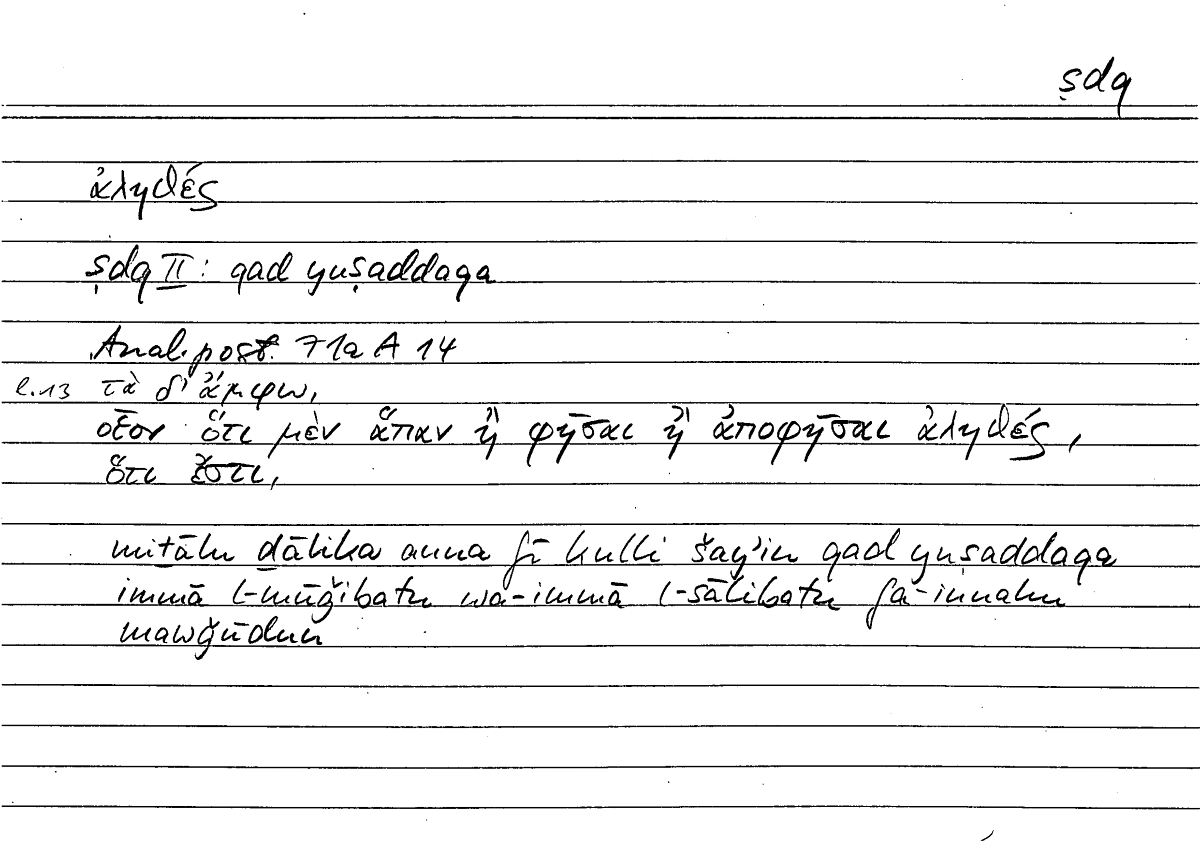 ṣdq
ἀληθές
ṣdq II: qad yuṣaddaqa
Anal. post. 71a A 14
l.13 τὰ δ' ἄμφω,
οἷον ὅτι μὲν ἅπαν ἢ φῆσαι ἢ ἀποφῆσαι ἀληθές,
ὅτι ἔστι,
miṯālu ḏālika anna fī kulli šay'in qad yuṣaddaqa
immā l-mūǧibatu wa-immā l-sālibatu fa-innahu
mawǧūdun